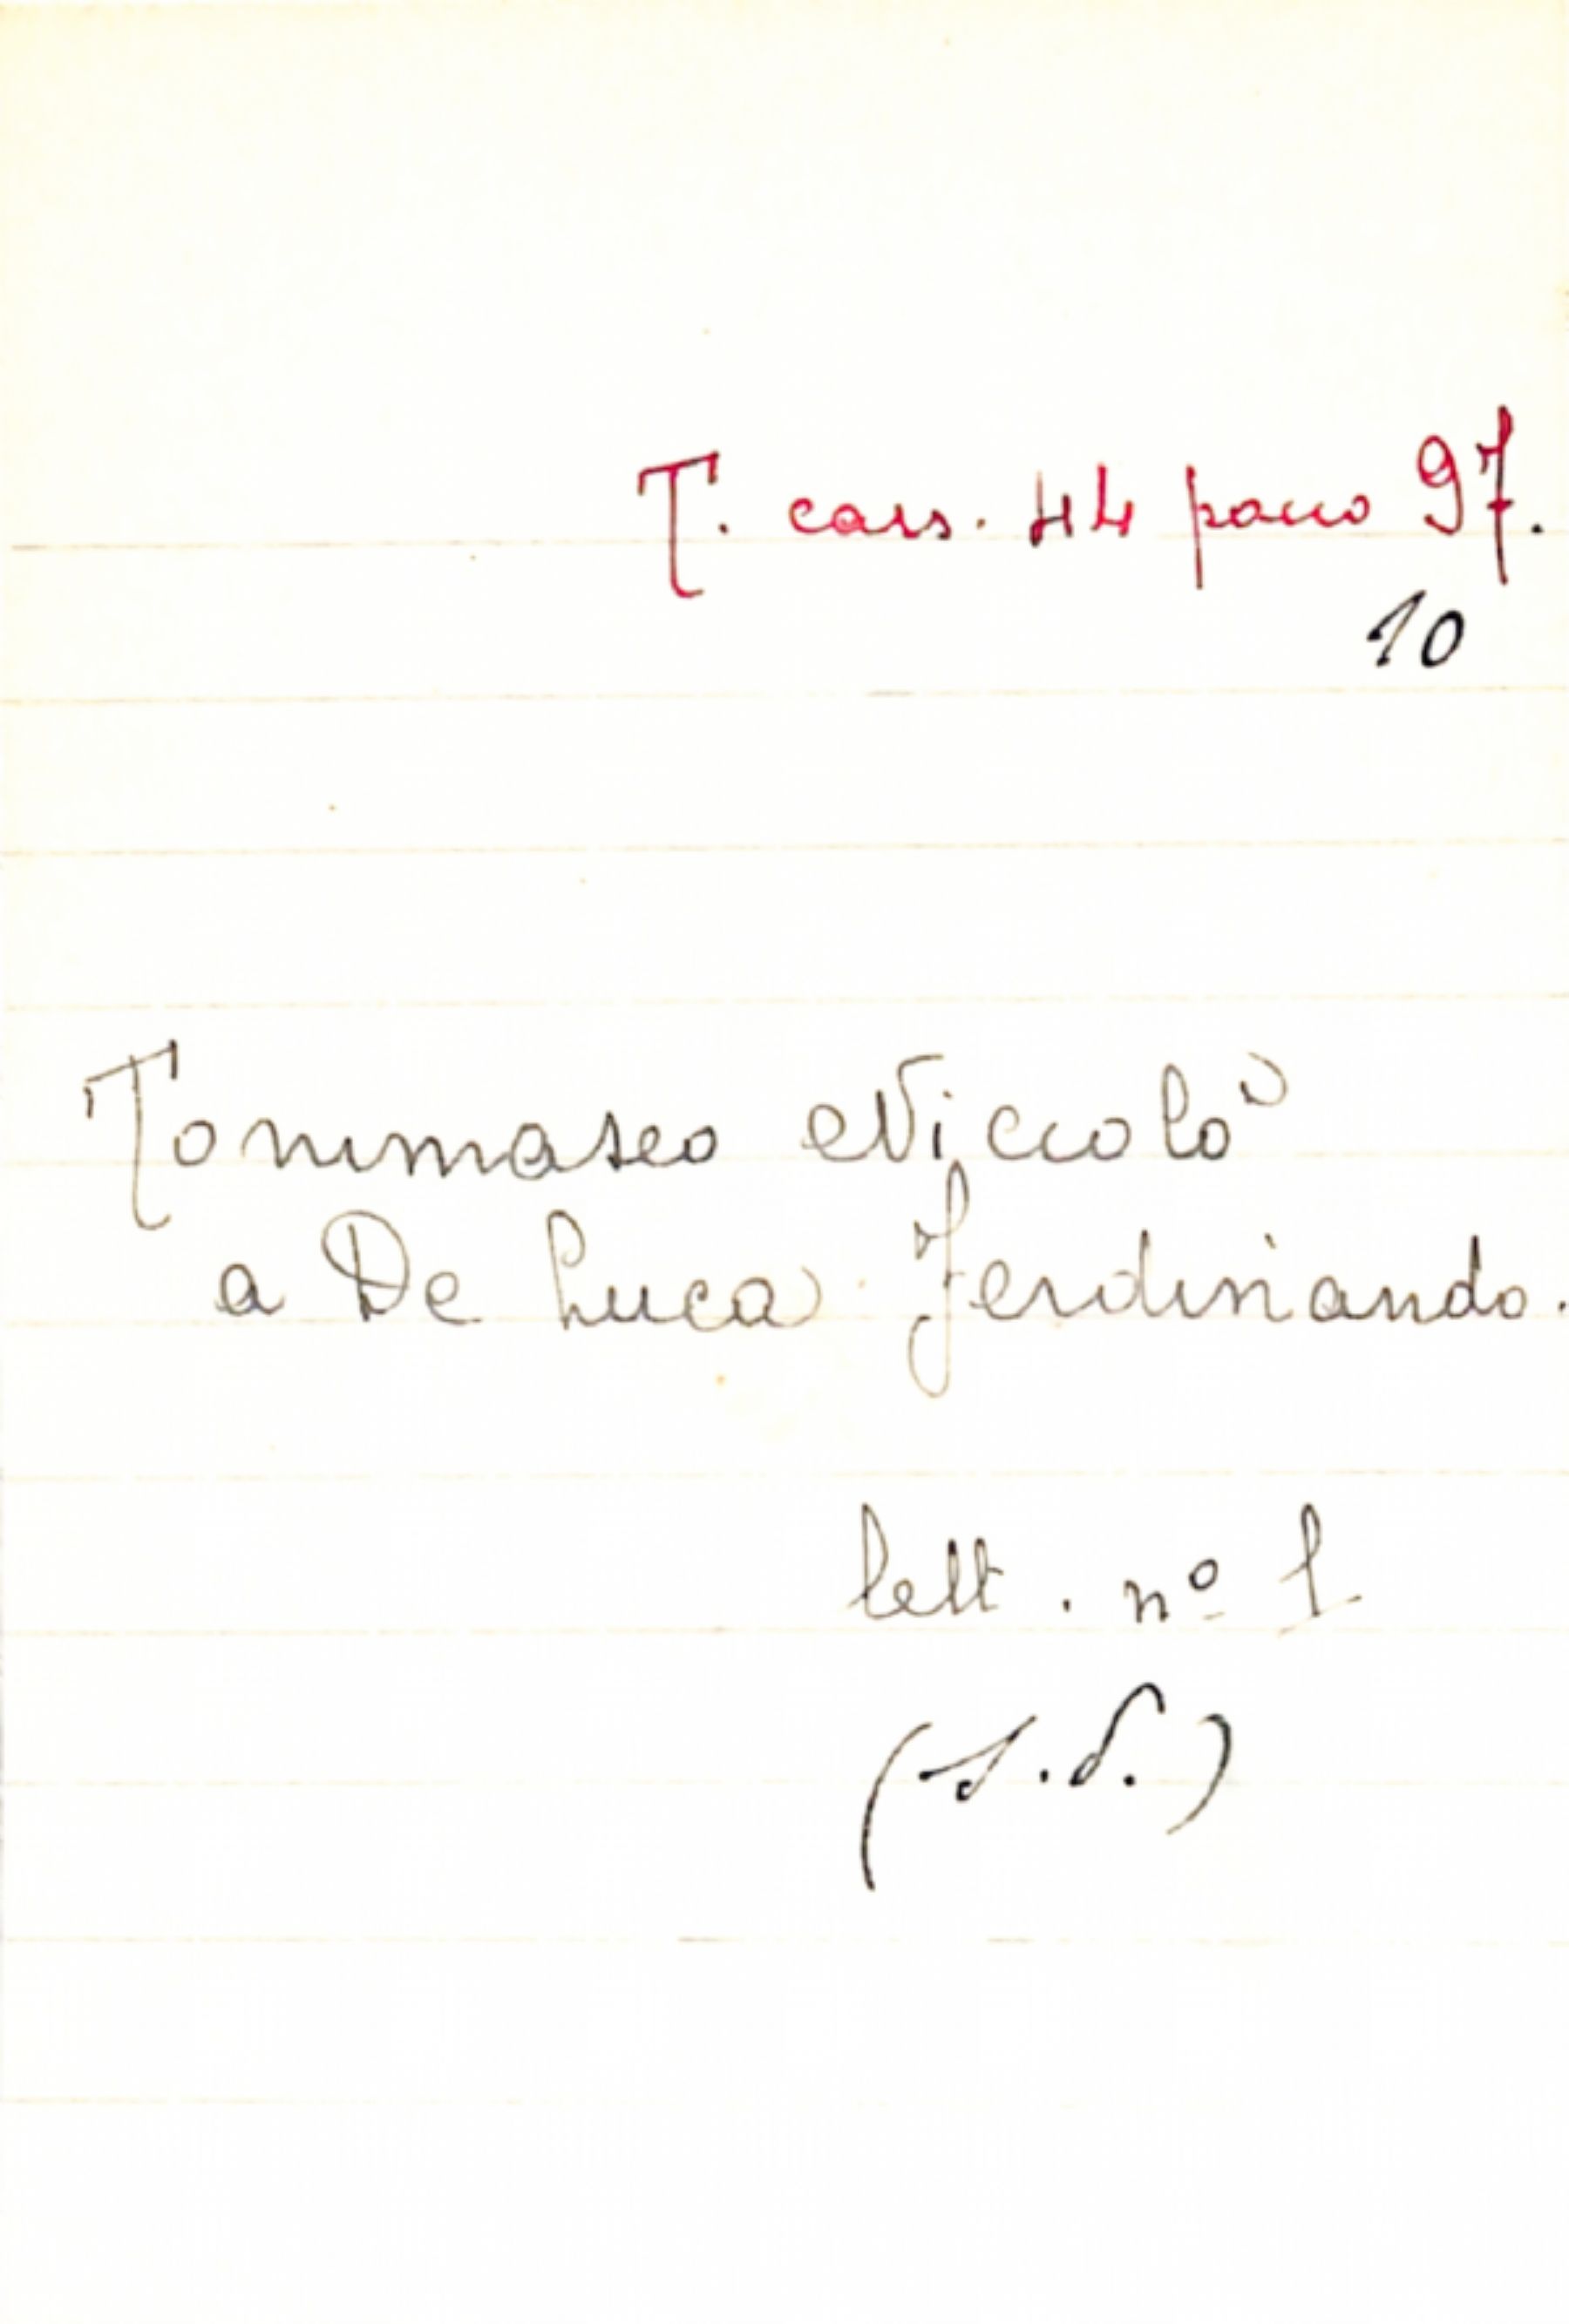 T. cass. 44 pacco 97.
10
Tommaseo Niccolò
a De Luca Ferdinando.
lett. nº 1
(s.d.)